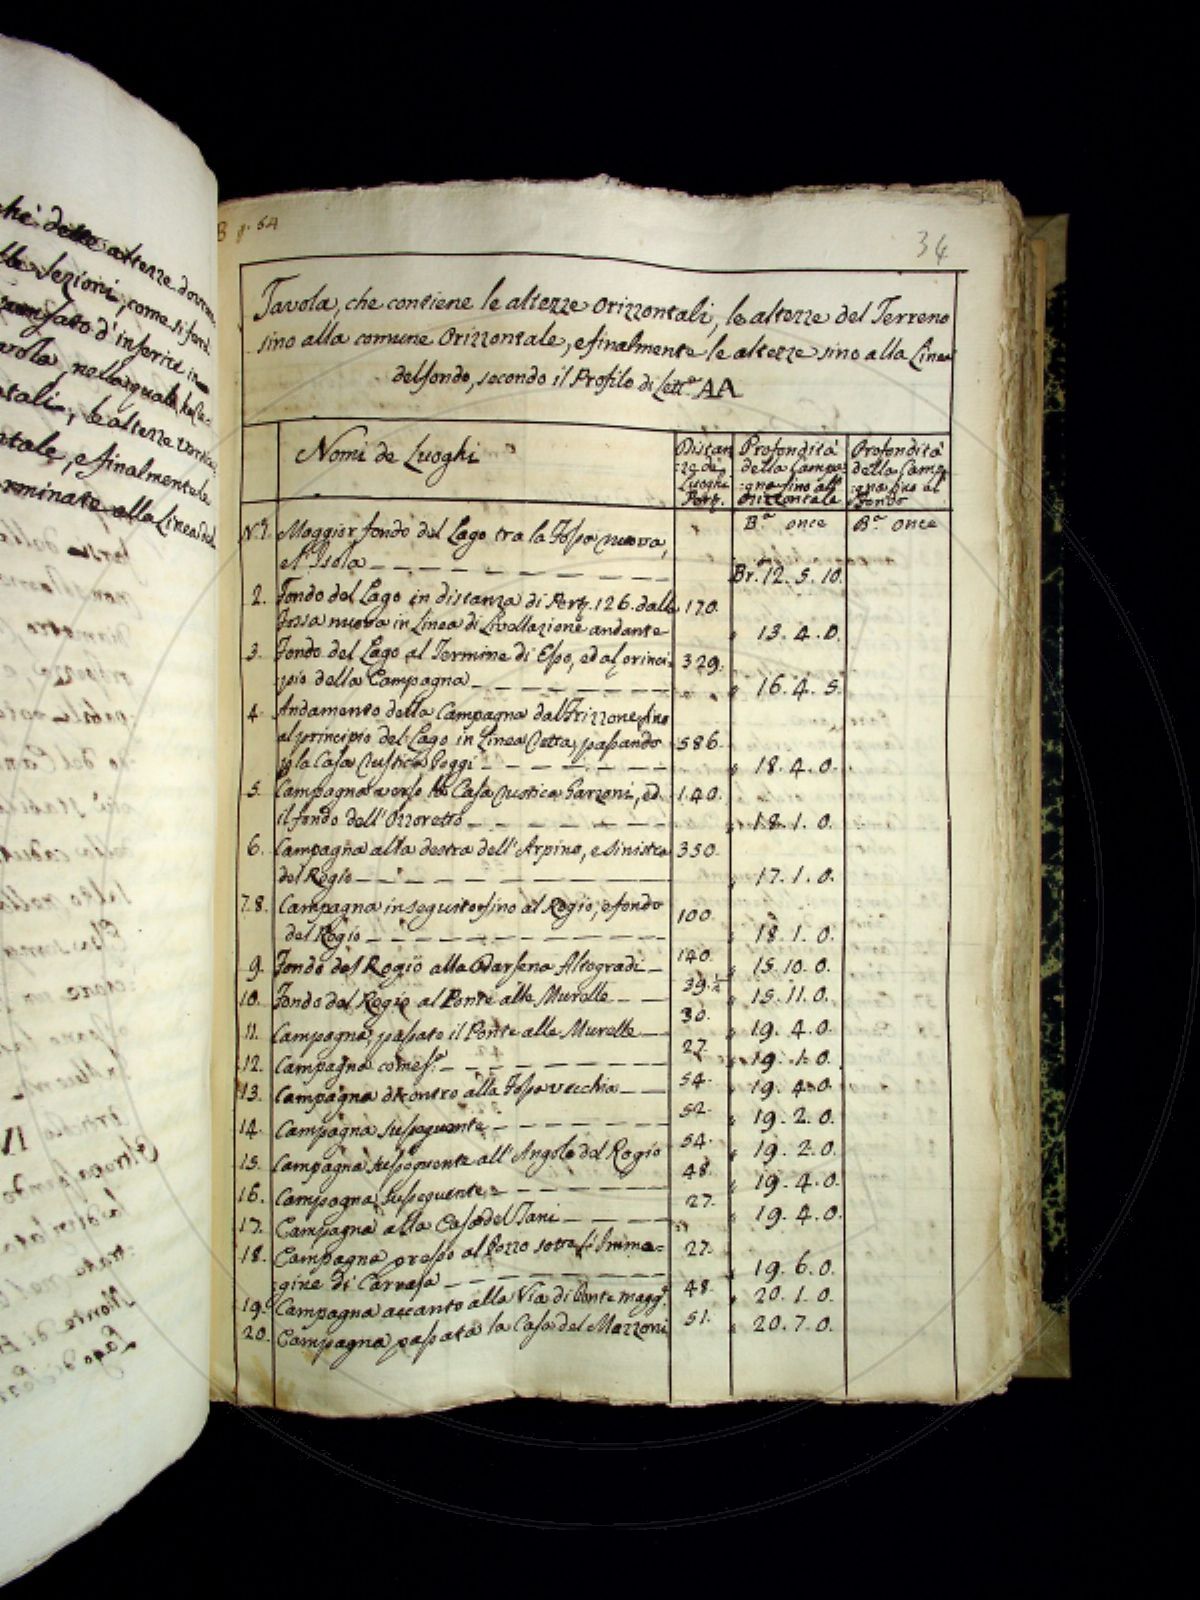 che delle altezze dovran
lle Sezioni, come si fará
d'inserire in
avola, nella quale
ntali, le altezze
ntale, e finalmente le
rminate alla Linea del
B p. 64
34
Tavola, che contiene le altezze Orizzontali, le altezze del Terreno
sino alla comune Orizzontale, e finalmente le altezze sino alla Linea
del fondo, secondo il Profilo di Lett.ª AA
Nomi de Luoghi
Distan
:ze de
Luoghi
Pert.
Profondità
della Campa
:gna sino all'
Orizzontale
Profondità
della Camp
:gna sino al
Fondo
Bª. once Bª. once
N.º 1. Maggior fondo del Lago tra la Fossa nuova,
e l'Isola Br.ª 12. 5. 10.
2. Fondo del Lago in distanza di Pert. 126. dalla 170.
Fossa nuova in Linea di Livellazione andante 13. 4. 0.
3. Fondo del Lago al Termine di Esso, ed al princi- 329.
pio della Campagna 16. 4. 5.
4. Andamento della Campagna dal Frizzone sino
al principio del Lago in Linea retta, passando 586.
p la Casa rustica Poggi 18. 4. 0.
5. Campagna verso la Casa rustica Garzoni, ed 140.
il fondo dell'Ozzoretto 18. 1. 0.
6. Campagna alla destra dell'Arpino, e sinistra 350.
del Rogio 17. 1. 0.
7.8. Campagna in seguito sino al Rogio, e fondo 100.
del Rogio 18. 1. 0.
9. Fondo del Rogio alla Darsena Altogradi 140. 15. 10. 0.
10. Fondo del Rogio al Ponte alle Murelle 39.½ 15. 11. 0.
11. Campagna, passato il Ponte alle Murelle 30. 19. 4. 0.
12. Campagna come s.ª 27. 19. 1. 0.
13. Campagna di contro alla Fossa vecchia 54. 19. 4. 0.
14. Campagna susseguente 52. 19. 2. 0.
15. Campagna susseguente all'Angolo del Rogio 54. 19. 2. 0.
16. Campagna susseguente 48. 19. 4. 0.
17. Campagna alla Casa del Tani 27. 19. 4. 0.
18. Campagna presso al Pozzo sotto l'Imma- 27.
gine di Carraja 19. 6. 0.
19. Campagna accanto alla Via di Ponte magg.e 48. 20. 1. 0.
20. Campagna passata la Casa del Mazzoni 51. 20. 7. 0.